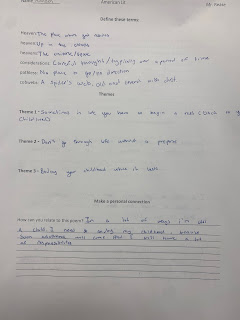 American Lit
Mr.
Define these terms
haven: The place where you
heaven: Up in the clouds
heavens: The universe/space
considerations: Careful thoughts, typically over a period of time
pathless: No place to go/no direction
cobwebs: A spider's web, old and covered with dust
Themes
Theme 1 - Sometimes in life you have to begin a reset (Back to your
Childhood)
Theme 2 - Don't go through life without a purpose
Theme 3 - Being your childhood where it
Make a personal connection
How can you relate to this poem? In a lot of ways I'm still
a child. I need to enjoy my childhood, because
soon adulthood will come and I will have a lot
of responsibilities